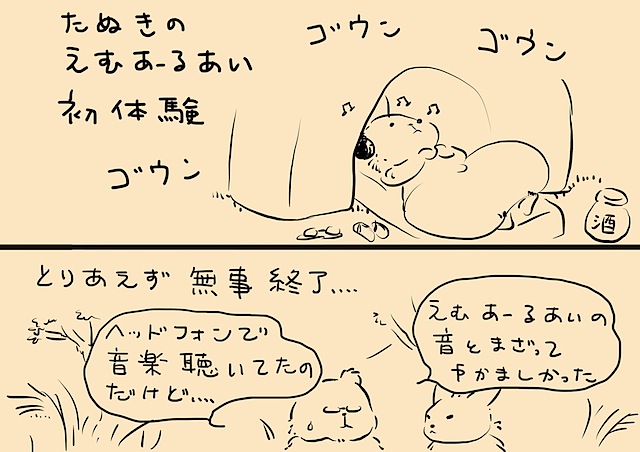 たぬきの
えむあーるあい
初体験
ゴウン
ゴウン
ゴウン
酒
とりあえず 無事 終了....
ヘッドフォンで
音楽 聴いてたの
だけど....
えむあーるあいの
音とまざって
やかましかった